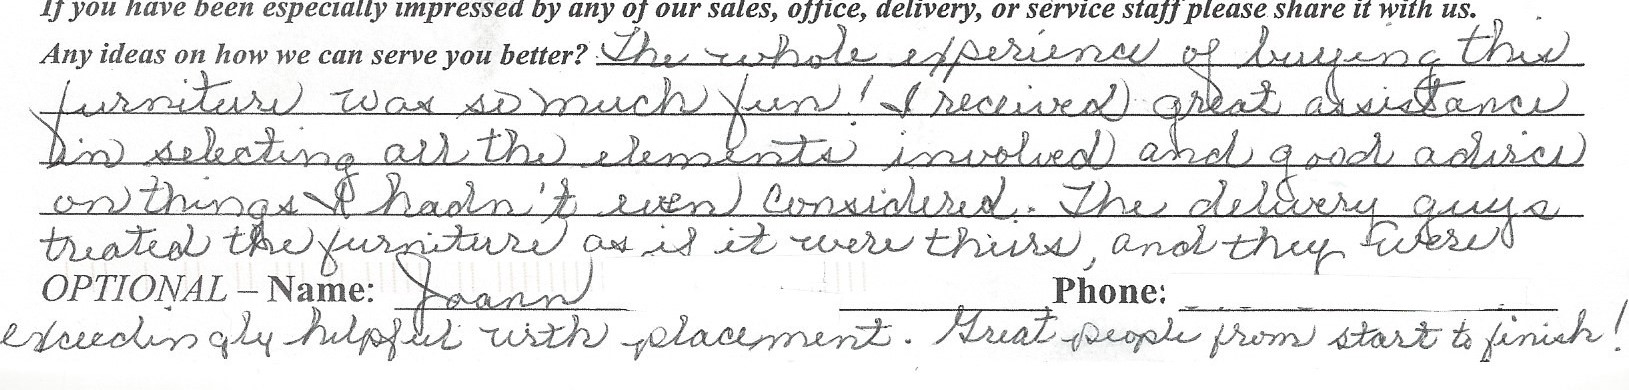 If you have been especially impressed by any of our sales, office, delivery, or service staff please share it with us.
Any ideas on how we can serve you better? The whole experience of buying this
furniture was so much fun! I received great assistance
in selecting all the elements involved and good advice
on things I hadn't even considered. The delivery guys
treated the furniture as if it were theirs, and they were
OPTIONAL – Name: Joann Phone:
exceedingly helpful with placement. Great people from start to finish!